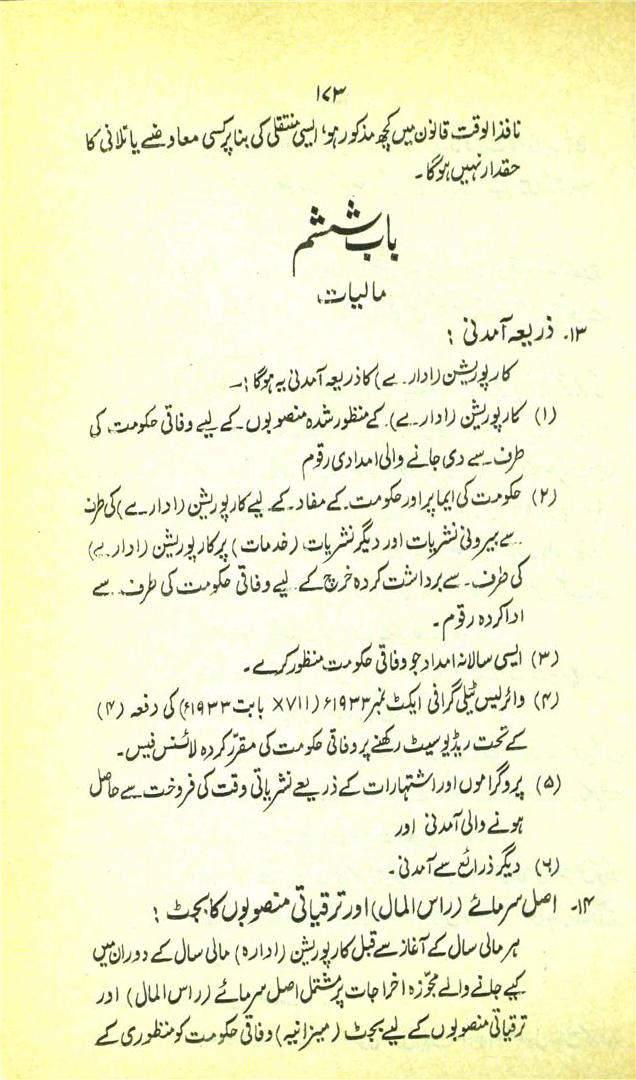 ۱۷۳
نافذ الوقت قانون میں کچھ مذکور ہو، ایسی منتقلی کی بنا پر کسی معاوضے یا تلافی کا
حقدار نہیں ہوگا۔
باب ششم
مالیات
۱۳۔ ذریعہ آمدنی :
کارپوریشن (ادارے) کا ذریعہ آمدنی یہ ہوگا :۔
(۱) کارپوریشن (ادارے) کے منظور شدہ منصوبوں کے لیے وفاقی حکومت کی
طرف سے دی جانے والی امدادی رقوم
(۲) حکومت کی ایما پر اور حکومت کے مفاد کے لیے کارپوریشن (ادارے) کی طرف
سے بیرونی نشریات اور دیگر نشریات (خدمات) پر کارپوریشن (ادارے)
کی طرف سے برداشت کردہ خرچ کے لیے وفاقی حکومت کی طرف سے
ادا کردہ رقوم۔
(۳) ایسی سالانہ امداد جو وفاقی حکومت منظور کرے۔
(۴) وائرلیس ٹیلی گرافی ایکٹ نمبر ۱۹۳۳ء (XVII بابت ۱۹۳۳ء) کی دفعہ (۴)
کے تحت ریڈیو سیٹ رکھنے پر وفاقی حکومت کی مقرر کردہ لائسنس فیس۔
(۵) پروگراموں اور اشتہارات کے ذریعے نشریاتی وقت کی فروخت سے حاصل
ہونے والی آمدنی اور
(۶) دیگر ذرائع سے آمدنی۔
۱۴۔ اصل سرمائے (راس المال) اور ترقیاتی منصوبوں کا بجٹ :
ہر مالی سال کے آغاز سے قبل کارپوریشن (ادارہ) مالی سال کے دوران میں
کیے جانے والے مجوّزہ اخراجات پر مشتمل اصل سرمائے (راس المال) اور
ترقیاتی منصوبوں کے لیے بجٹ (میزانیہ) وفاقی حکومت کو منظوری کے